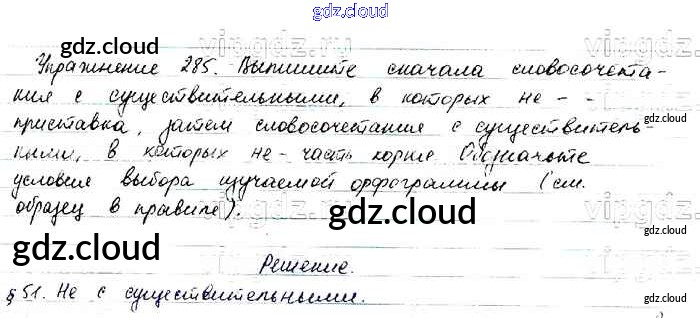 gdz.cloud
Упражнение 285. Выпишите сначала словосочета-
ния с существительными, в которых не - -
приставка, затем словосочетания с существитель-
ными, в которых не - часть корня Обозначьте
условия выбора изучаемой орфограммы (см.
образец в правиле).
Решение.
§ 51. Не с существительными.
gdz.cloud
gdz.cloud
gdz.cloud
gdz.cloud
gdz.cloud
gdz.cloud
gdz.cloud
gdz.cloud
vipgdz
vipgdz
vipgdz